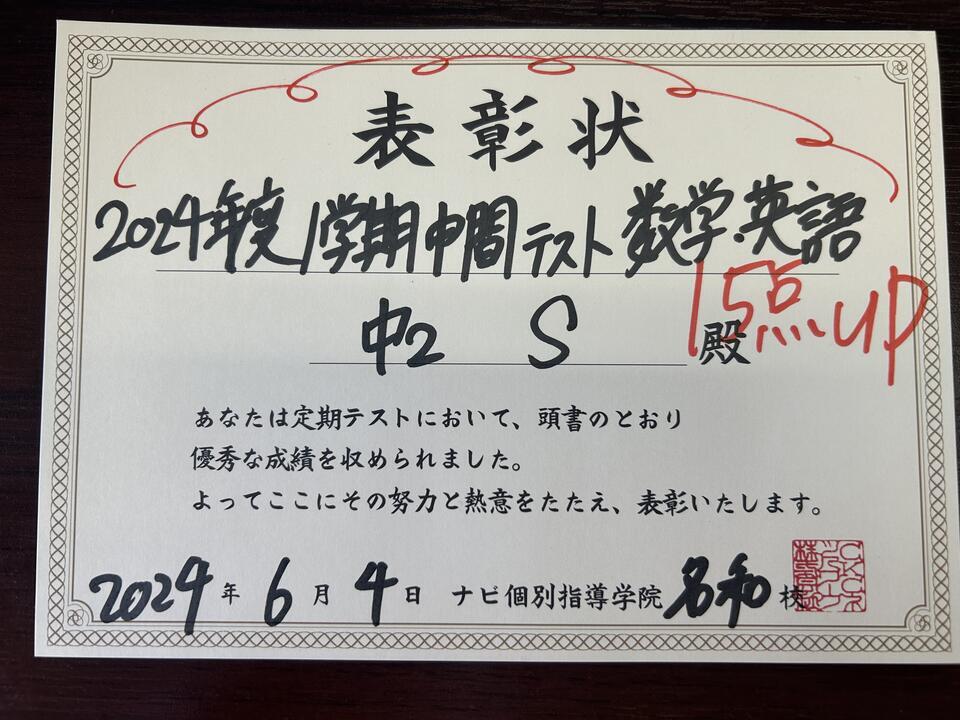 表彰状
2024年度 1学期中間テスト 数学・英語
15点UP
中2 S 殿
あなたは定期テストにおいて、頭書のとおり
優秀な成績を収められました。
よってここにその努力と熱意をたたえ、表彰いたします。
2024年6月4日 ナビ個別指導学院 名和校